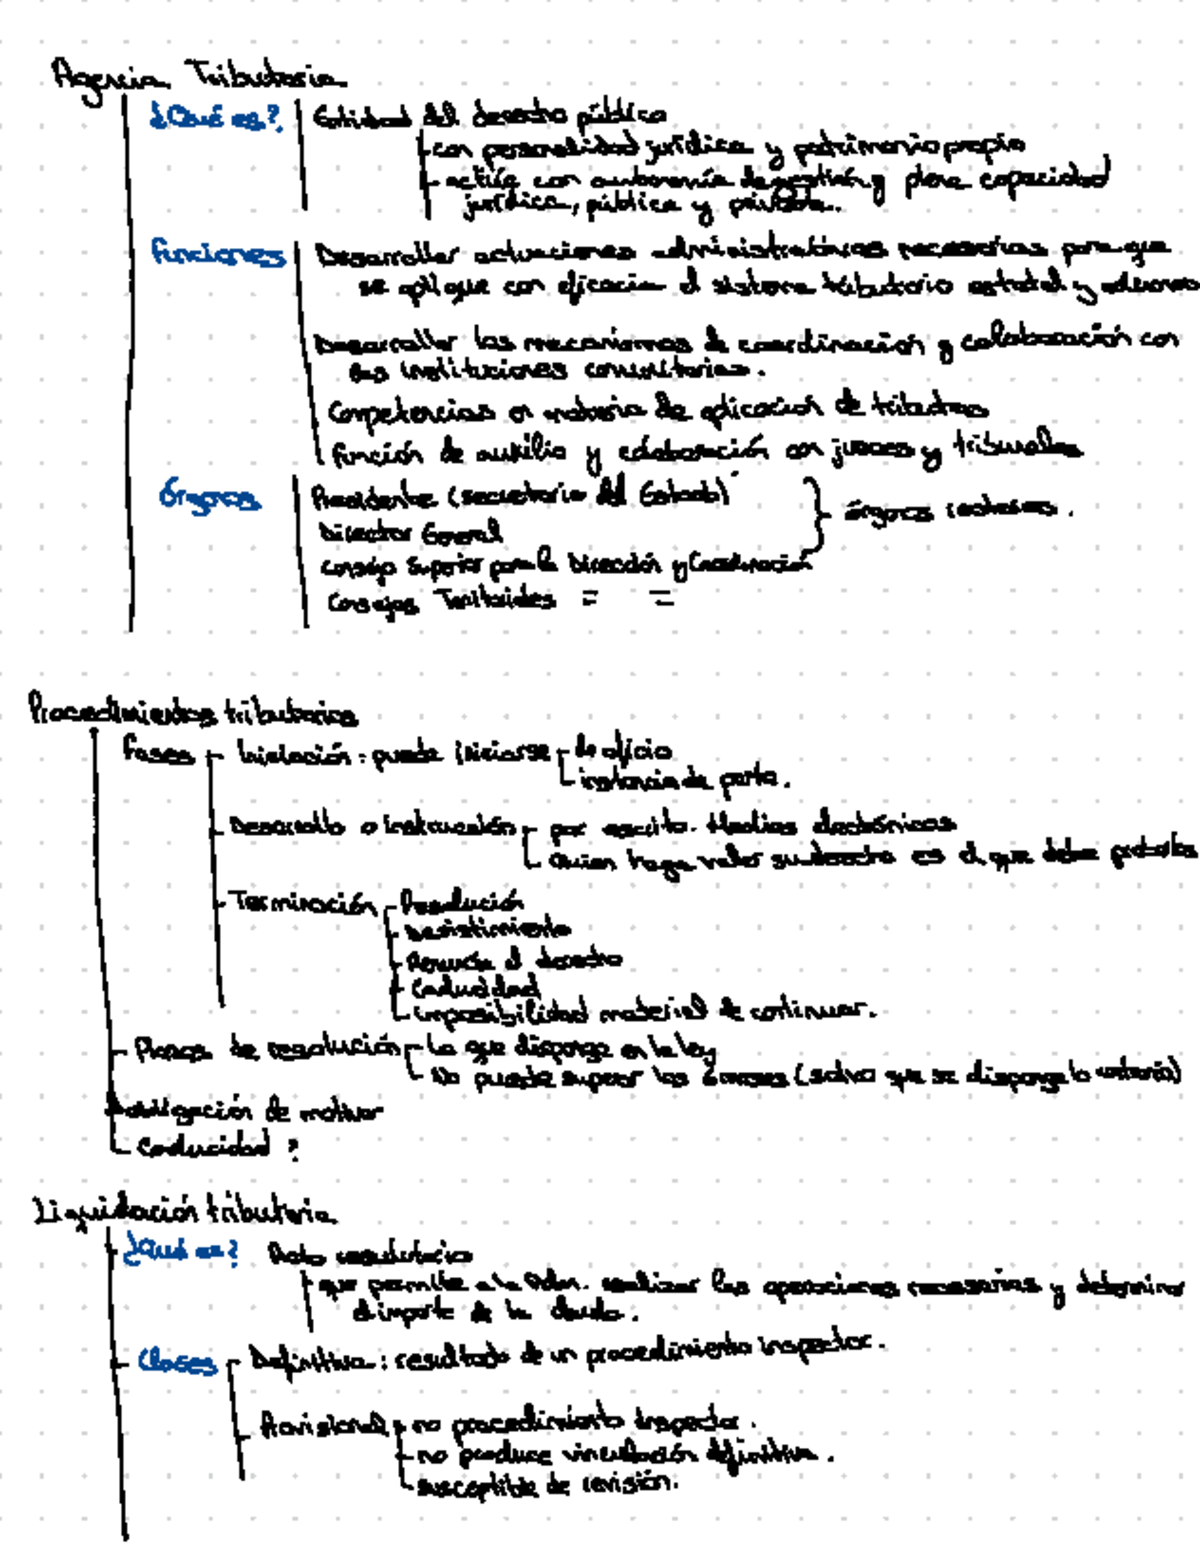 Agencia Tributaria
¿Qué es? Entidad del derecho público
con personalidad jurídica y patrimonio propio
actúa con autonomía de gestión y plena capacidad
jurídica, pública y privada.
funciones Desarrollar actuaciones administrativas necesarias para que
se aplique con eficacia el sistema tributario estatal y aduanero
Desarrollar los mecanismos de coordinación y colaboración con
las instituciones comunitarias.
Competencias en materia de aplicación de tributos
función de auxilio y colaboración con jueces y tribunales
Órganos Presidente (secretario del Estado)
Director General
órganos rectores.
consejo Superior para la Dirección y Coordinación
Consejos Territoriales = =
Procedimientos tributarios
fases Iniciación: puede iniciarse de oficio
instancia de parte.
Desarrollo o instrucción por escrito. Medios electrónicos
Quien haga valer su derecho es el que debe probarlo
Terminación Resolución
Desistimiento
Renuncia al derecho
Caducidad
imposibilidad material de continuar.
Plazos de resolución Lo que disponga en la ley
No puede superar los 6 meses (salvo que se disponga lo contrario)
obligación de motivar
Caducidad ?
Liquidación tributaria
¿Qué es? Acto resolutorio
que permite a la Adm. realizar las operaciones necesarias y determinar
el importe de la deuda.
Clases Definitiva: resultado de un procedimiento inspector.
Provisional no procedimiento inspector.
no produce vinculación definitiva.
susceptible de revisión.